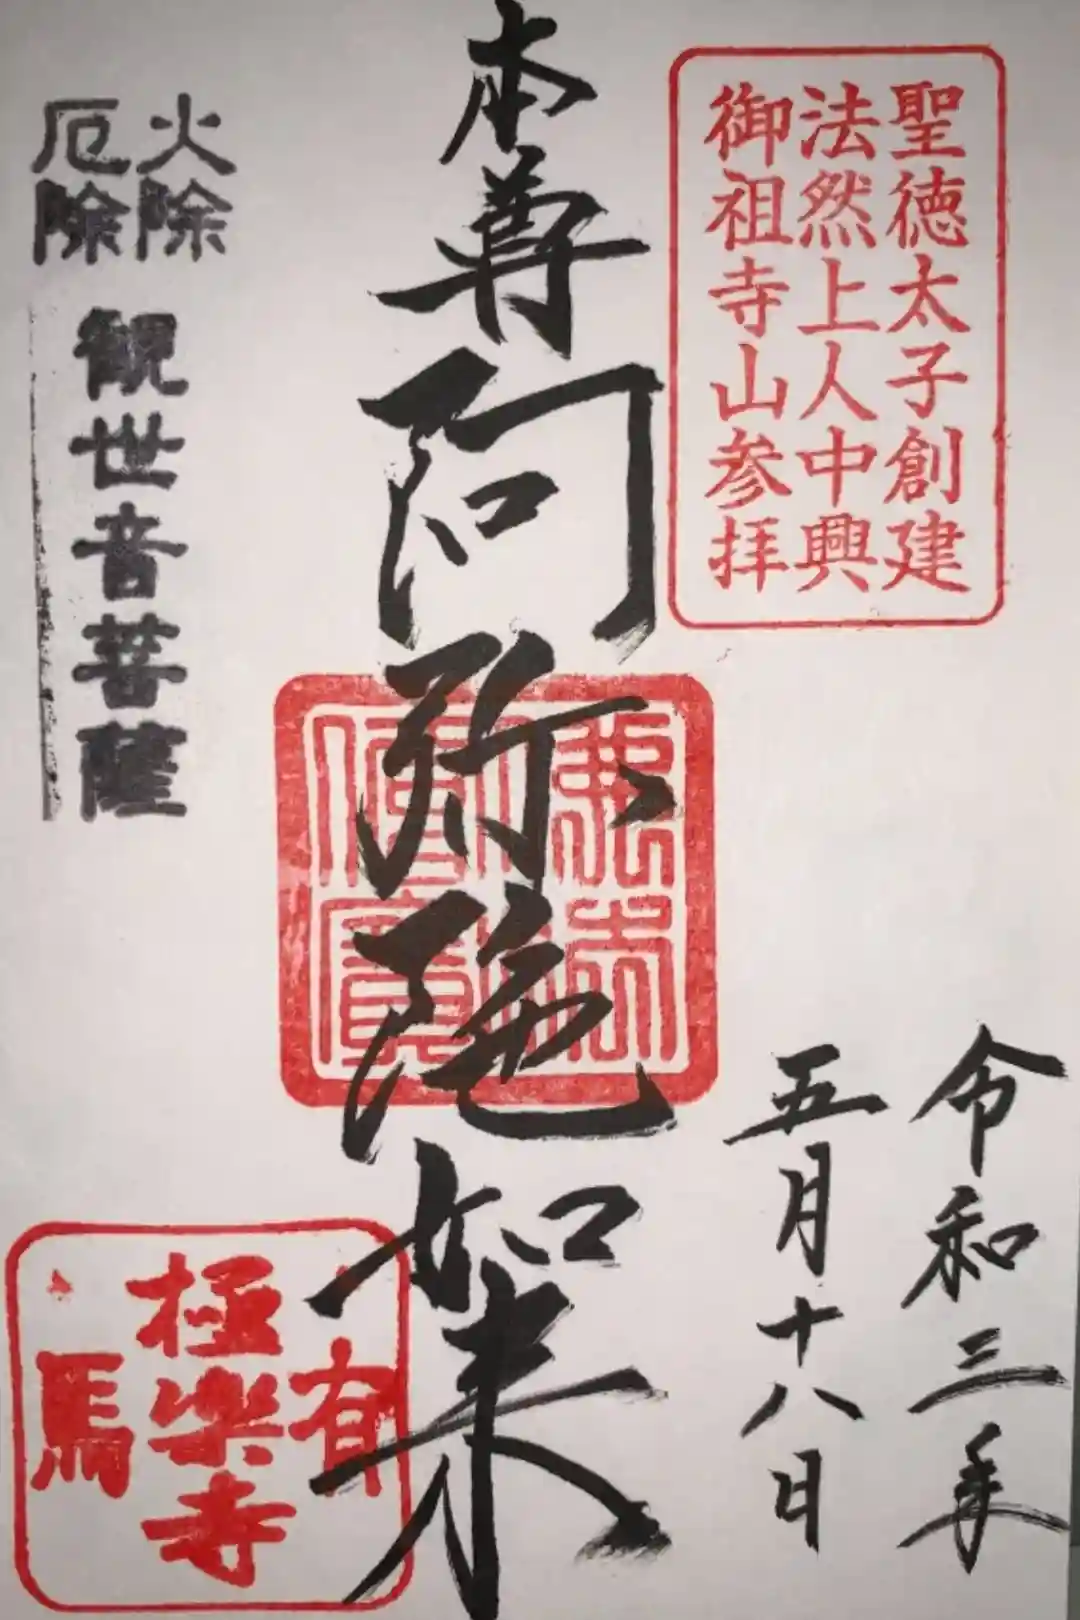 聖徳太子創建
法然上人中興
御祖寺山参拝
令和三年
五月十八日
本尊阿弥陀如来
火除
厄除
観世音菩薩
有馬
極楽寺